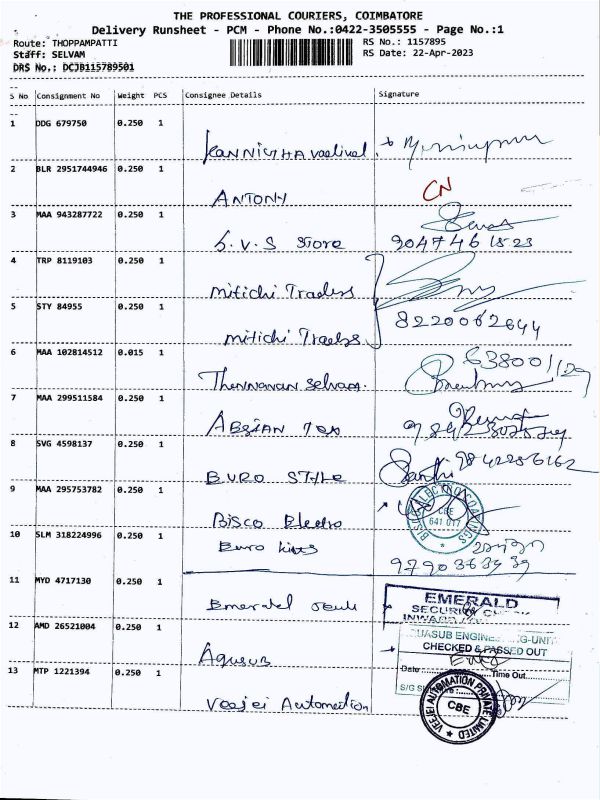 THE PROFESSIONAL COURIERS, COIMBATORE
Delivery Runsheet - PCM - Phone No.:0422-3505555 - Page No.:1
Route: THOPPAMPATTI RS No.: 1157895
Staff: SELVAM RS Date: 22-Apr-2023
DRS No.: DCJB115789501
S No Consignment No Weight PCS Consignee Details Signature
1 DDG 679750 0.250 1
2 BLR 2951744946 0.250 1
ANTONY CN
3 MAA 943287722 0.250 1
S.V.S Store 9047461523
4 TRP 8119103 0.250 1
mitichi Traders
5 STY 84955 0.250 1
8220062644
mitichi Traders
6 MAA 102814512 0.015 1
Thennavan Selvam.
7 MAA 299511584 0.250 1
8 SVG 4598137 0.250 1
9842286162
BURO STILE
9 MAA 295753782 0.250 1
BISCO ELECTRO COATINGS
CBE
641 017
Bisco Electro
10 SLM 318224996 0.250 1
Euro
11 MYD 4717130 0.250 1
EMERALD
SECURITY CHECK
INWARD
Emerald
12 AMD 26521004 0.250 1
AQUASUB ENGINEERING-UNIT
CHECKED & PASSED OUT
Aquasub
Date Time Out
13 MTP 1221394 0.250 1
S/G
VEEJEI AUTOMATION PRIVATE LIMITED
CBE
Veejei Automation